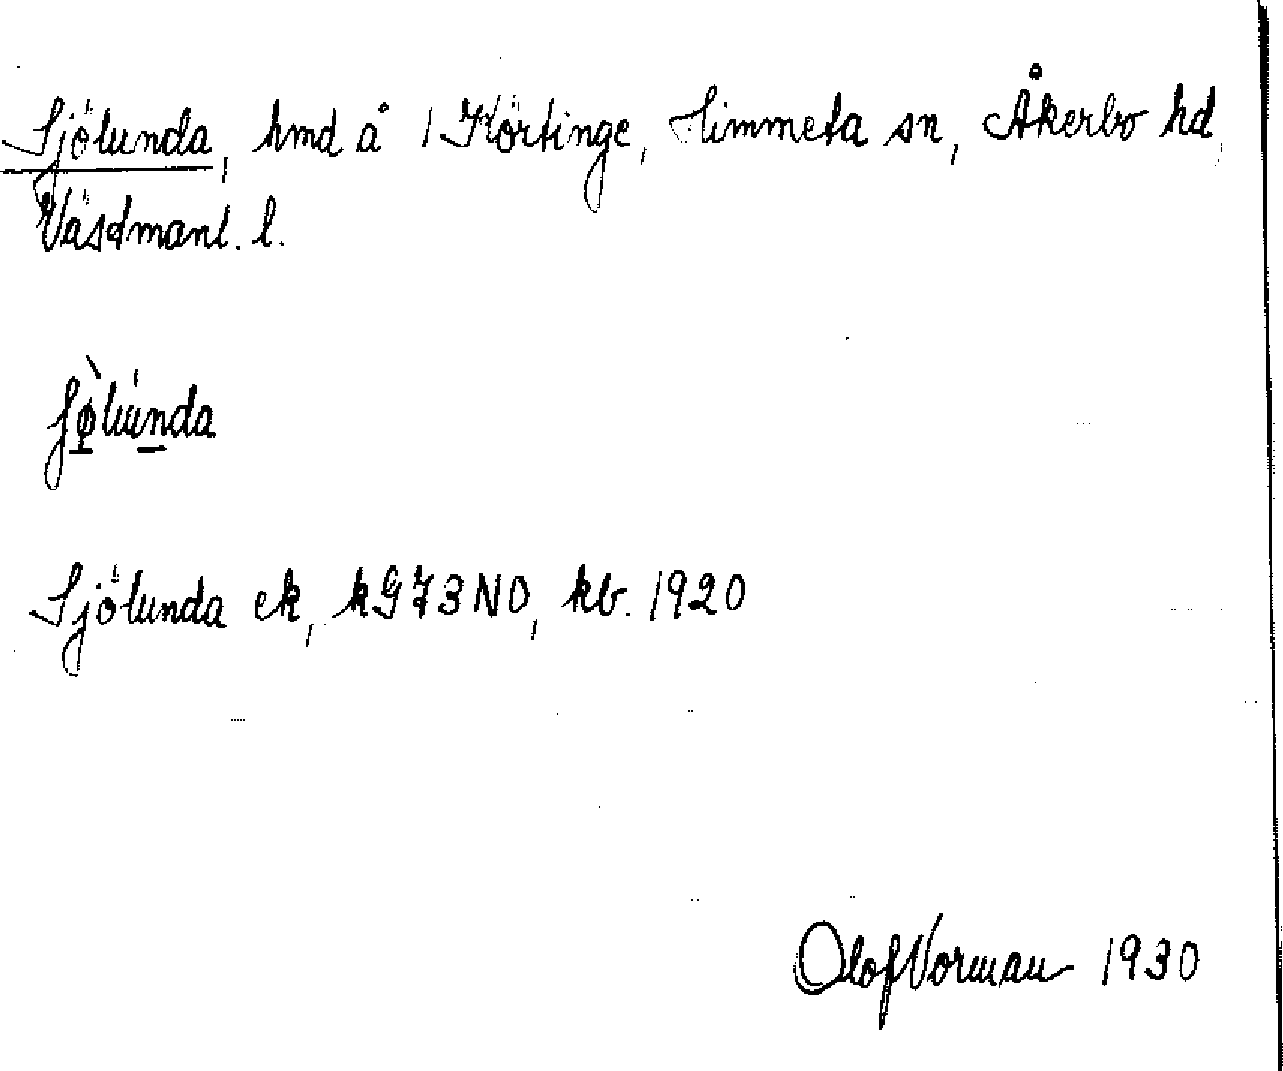 Sjölunda, hmd å 1 Körtinge, Himmeta sn, Åkerbo hd,
Västmanl. l.
ʃø̀lúnda
Sjölunda ek, kG73NO, kb. 1920
Olof Norman 1930